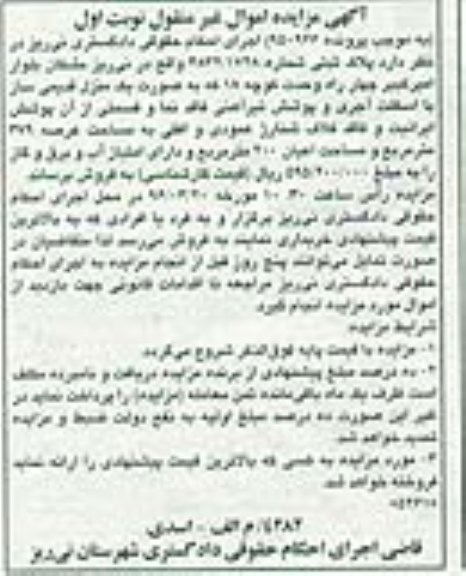 آگهی مزایده اموال غیر منقول نوبت اول
(به موجب پرونده اجرای احکام حقوقی دادگستری نی‌ریز در
نظر دارد پلاک ثبتی شماره واقع در نی‌ریز بلوار
امیرکبیر چهار راه وحدت کوچه ۱۸ که به صورت یک منزل قدیمی ساز
با اسکلت آجری و پوشش فاقد نما و قسمتی از آن پوشش
ایرانیت و فاقد عمودی و افقی به مساحت عرصه ۳۷۹
مترمربع و مساحت اعیان ۲۰۰ مترمربع و دارای امتیاز آب و برق و گاز
را به مبلغ ۵۹۵/۲۰۰/۰۰۰ ریال (قیمت کارشناسی) به فروش برساند.
مزایده رأس ساعت ۱۰:۳۰ مورخه در محل اجرای احکام
حقوقی دادگستری نی‌ریز برگزار و به فرد یا افرادی که به بالاترین
قیمت پیشنهادی خریداری نمایند به فروش می‌رسد لذا متقاضیان در
صورت تمایل می‌توانند پنج روز قبل از انجام مزایده به اجرای احکام
حقوقی دادگستری نی‌ریز مراجعه تا اقدامات قانونی جهت بازدید از
اموال مورد مزایده انجام گیرد.
شرایط مزایده:
۱- مزایده با قیمت پایه فوق‌الذکر شروع می‌گردد.
۲- ده درصد مبلغ پیشنهادی از برنده مزایده دریافت و نامبرده مکلف
است ظرف یک ماه باقی‌مانده ثمن معامله (مزایده) را پرداخت نماید در
غیر این صورت ده درصد مبلغ اولیه به نفع دولت ضبط و مزایده
تجدید خواهد شد.
۳- مورد مزایده به کسی که بالاترین قیمت پیشنهادی را ارائه نماید
فروخته خواهد شد.
۴۲۸۲/م الف - اسدی
قاضی اجرای احکام حقوقی دادگستری شهرستان نی‌ریز